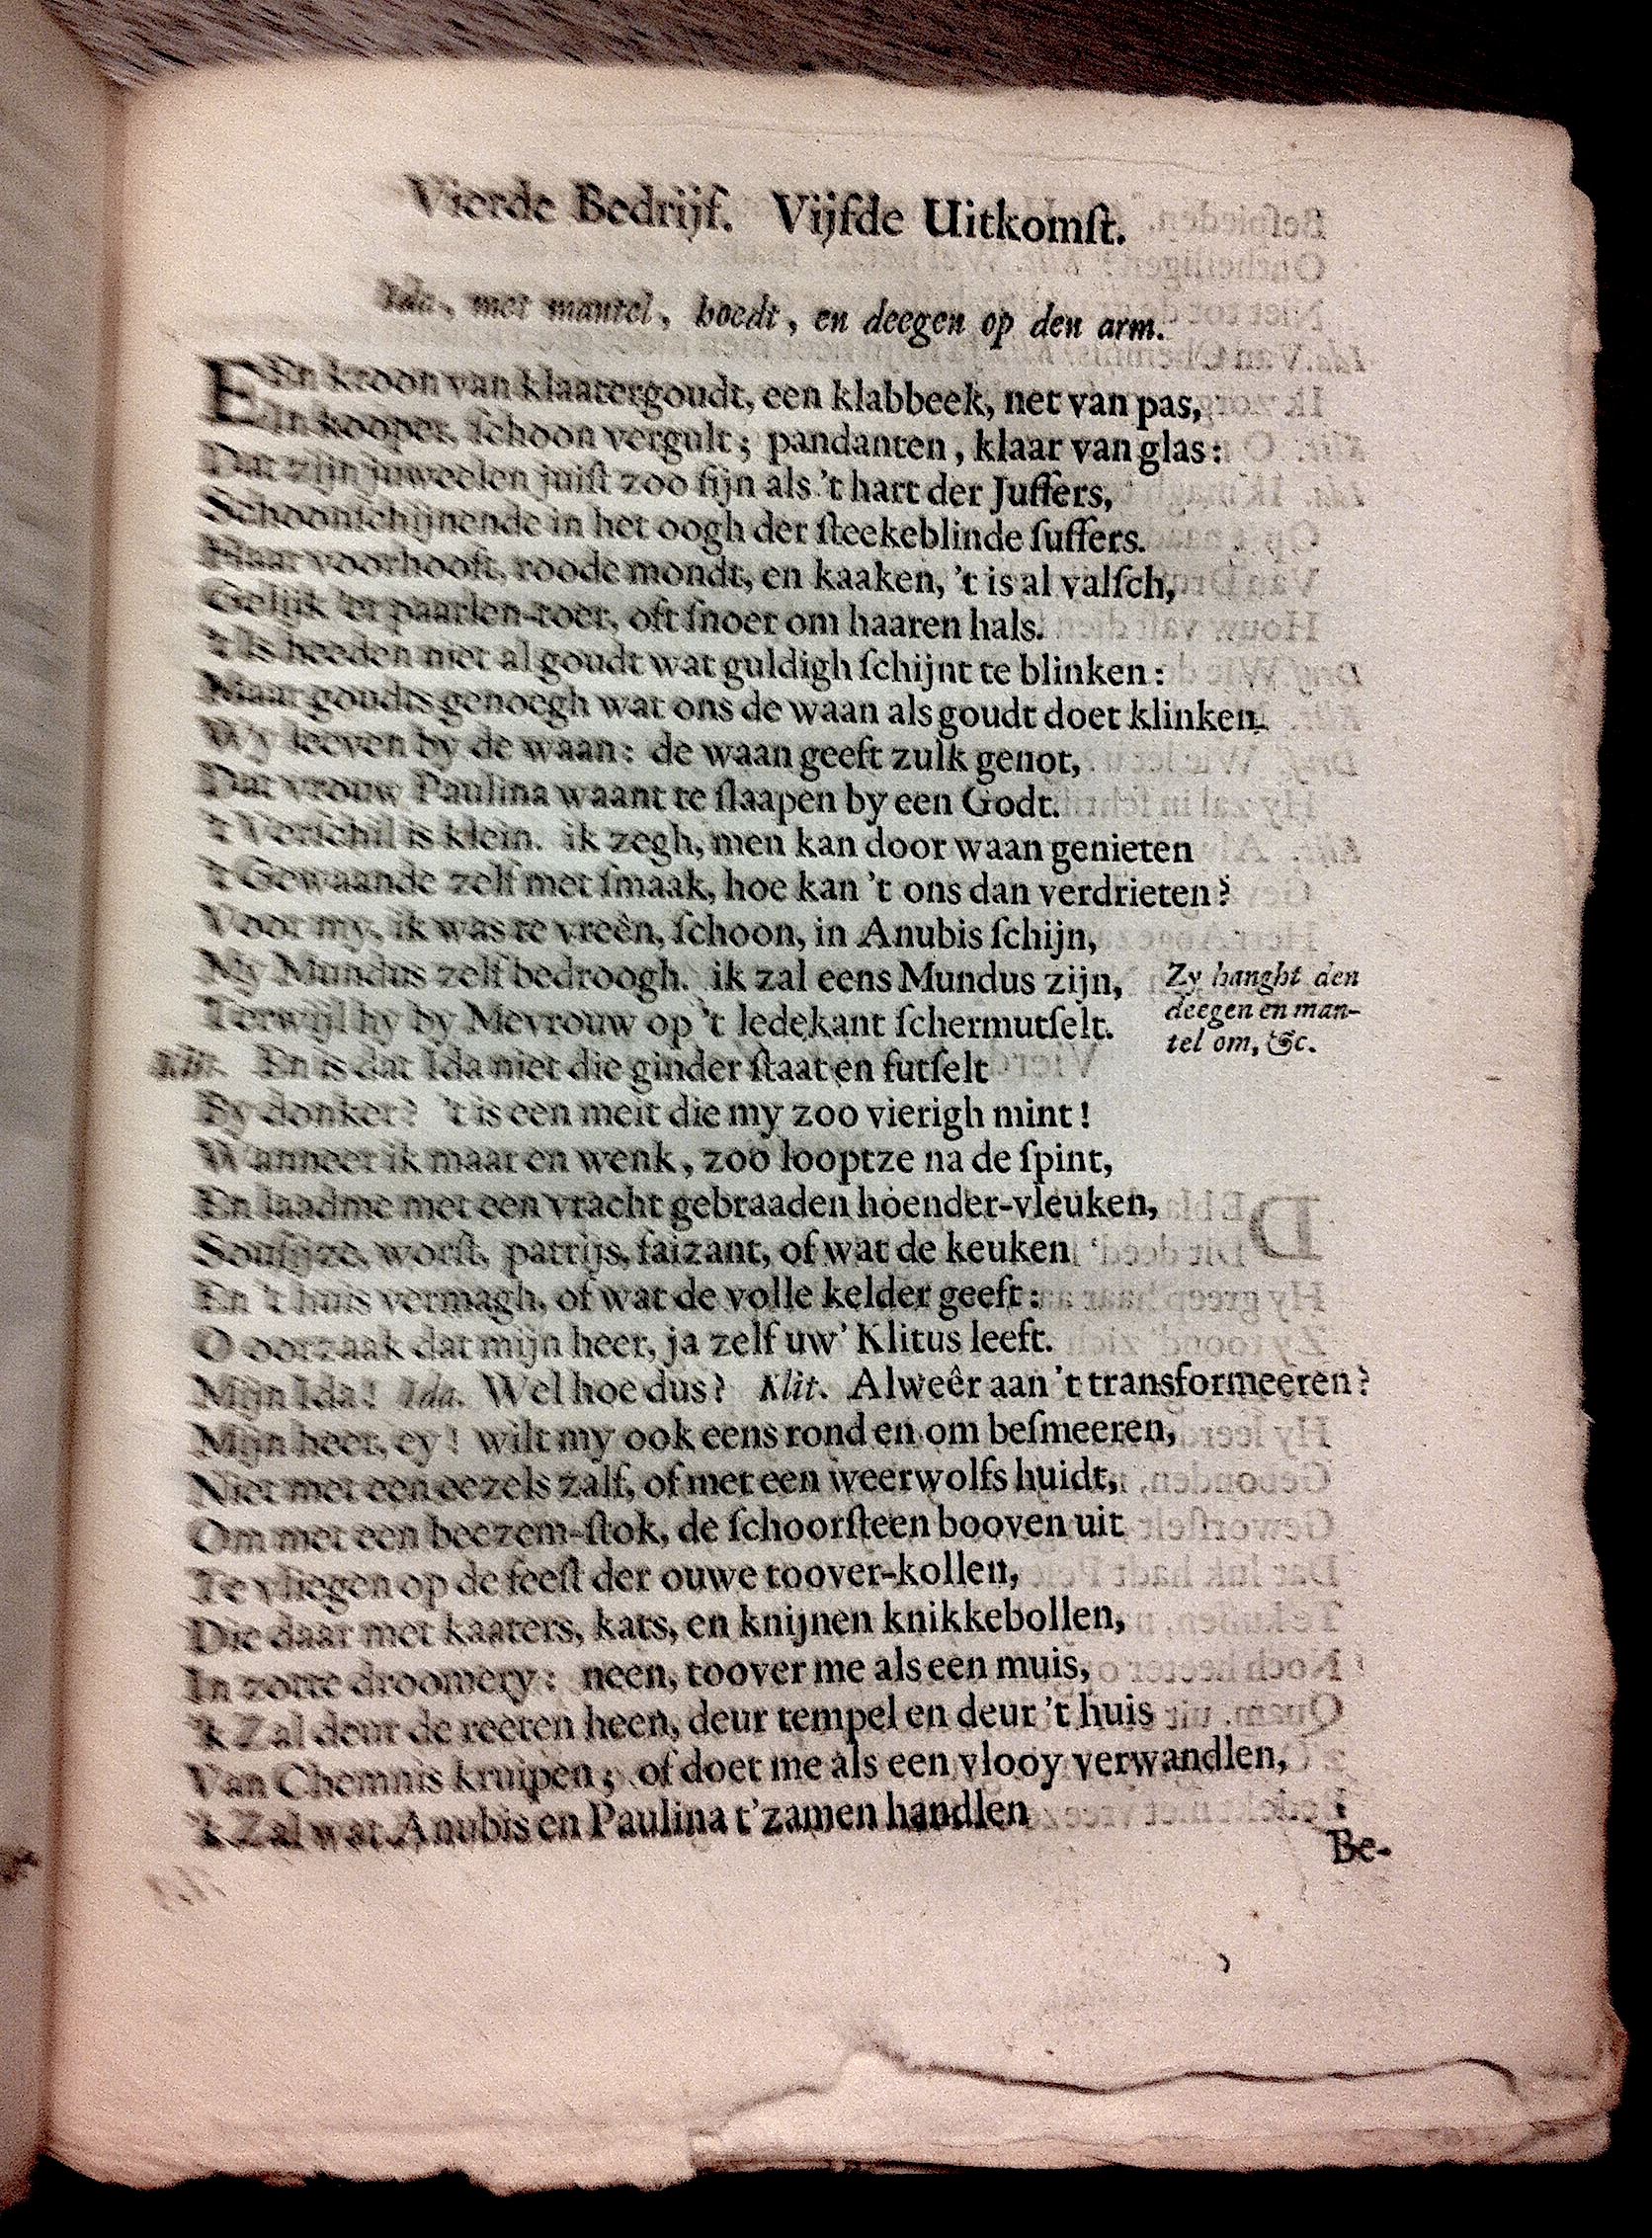 Vierde Bedrijf. Vijfde Uitkomſt.
Ida, met mantel, hoedt, en deegen op den arm.
EEn kroon van klaatergoudt, een klabbeek, net van pas,
In kooper, ſchoon vergult; pandanten, klaar van glas:
Dat zijn juweelen juiſt zoo fijn als 't hart der Juffers,
Schoonſchijnende in het oogh der ſteekeblinde ſuffers.
Haar voorhooft, roode mondt, en kaaken, 't is al valſch,
Gelijk 'er paarlen-toer, oft ſnoer om haaren hals.
't Is heeden niet al goudt wat guldigh ſchijnt te blinken:
Maar goudts genoegh wat ons de waan als goudt doet klinken.
Wy leeven by de waan: de waan geeft zulk genot,
Dat vrouw Paulina waant te ſlaapen by een Godt.
't Verſchil is klein. ik zegh, men kan door waan genieten
't Gewaande zelf met ſmaak, hoe kan 't ons dan verdrieten?
Voor my, ik was te vreên, ſchoon, in Anubis ſchijn,
My Mundus zelf bedroogh. ik zal eens Mundus zijn,
Zy hanght den
deegen en man-
tel om, &c.
Terwijl hy by Mevrouw op 't ledekant ſchermutſelt.
Klit. En is dat Ida niet die ginder ſtaat en futſelt
By donker? 't is een meit die my zoo vierigh mint!
Wanneer ik maar en wenk, zoo looptze na de ſpint,
En laadme met een vracht gebraaden hoender-vleuken,
Souſijze, worſt, patrijs, faizant, of wat de keuken
En 't huis vermagh, of wat de volle kelder geeft:
O oorzaak dat mijn heer, ja zelf uw' Klitus leeft.
Mijn Ida! Ida. Wel hoe dus? Klit. Alweêr aan 't transformeeren?
Mijn heer, ey! wilt my ook eens rond en om beſmeeren,
Niet met een eezels zalf, of met een weerwolfs huidt,
Om met een beezem-ſtok, de ſchoorſteen booven uit
Te vliegen op de feeſt der ouwe toover-kollen,
Die daar met kaaters, kats, en knijnen knikkebollen,
In zotte droomery: neen, toover me als een muis,
'k Zal deur de reeten heen, deur tempel en deur 't huis
Van Chemnis kruipen; of doet me als een vlooy verwandlen,
'k Zal wat Anubis en Paulina t'zamen handlen
Be-